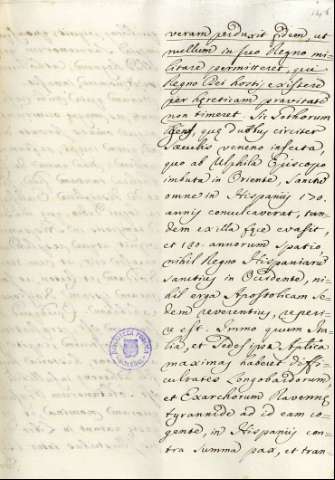 veram perduxit fidem, ut
nullum in suo Regno mi-
litare permitteret, qui
Regno Dei hostis existere
per hęreticam pravitate
non timeret. Sic Gothorum
gens, quę duobus circiter
sæculis veneno infecta,
quo ab Ulphila Episcopo
imbuta in Oriente, Sancta
omne in Hispaniis 170.
annis conculcaverat, tan-
dem ex illa fęce evasit,
et 130. annorum spatio
nihil Regno Hispaniarum
sanctius in Occidente, ni-
hil erga Apostolicam Se-
dem reverentius, reperi-
est. Immo quum Ita-
lia, et Sedes ipsa Aplica
maximas haberet diffi-
cultates Longobardorum
et Exarchorum Ravennę
tyrannide ad id eam co-
gente, in Hispaniis con-
tra summa pax, et tran-